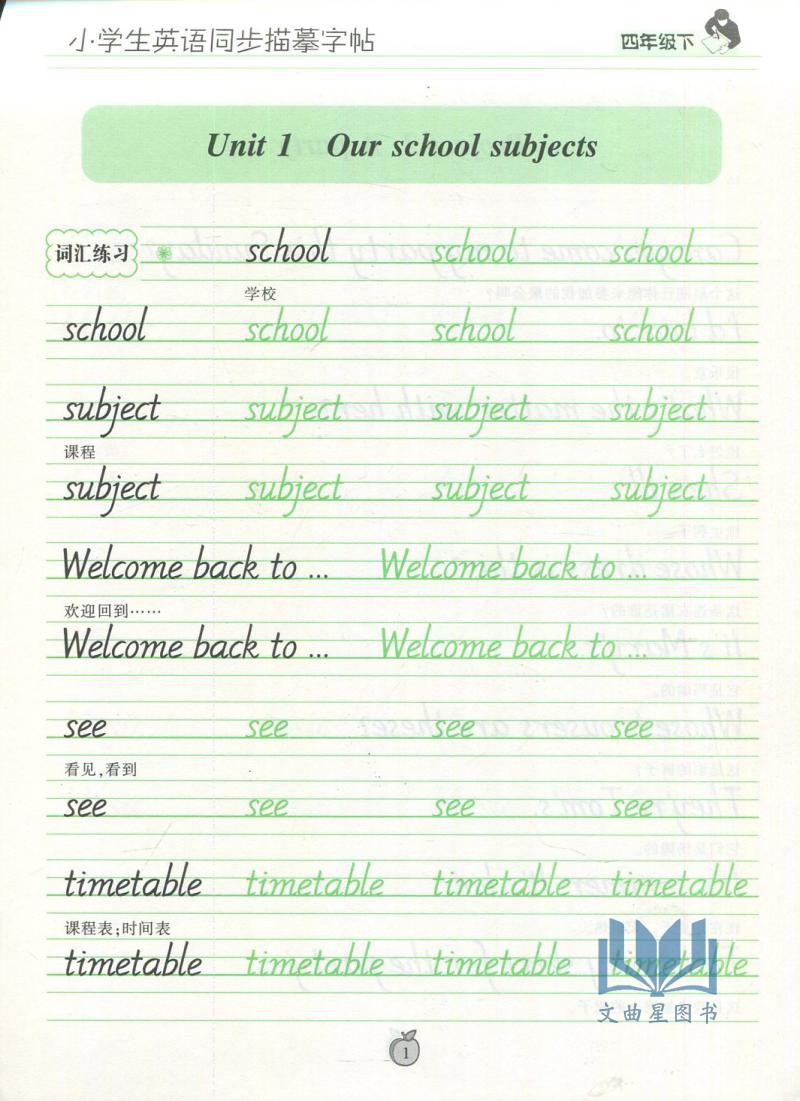 小学生英语同步描摹字帖 四年级下
Unit 1 Our school subjects
词汇练习 school school school
学校
school school school school
subject subject subject subject
课程
subject subject subject subject
Welcome back to … Welcome back to …
欢迎回到……
Welcome back to … Welcome back to …
see see see see
看见,看到
see see see see
timetable timetable timetable timetable
课程表;时间表
timetable timetable timetable timetable
文曲星图书
1